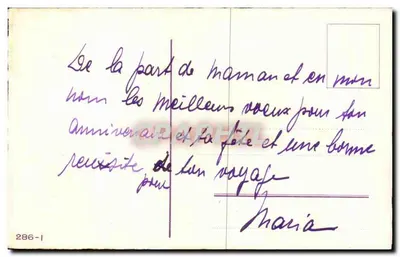 De la part de maman et en mon
nom les meilleurs voeux pour ton
anniversaire et ta fête et une bonne
reussite de
pour ton voyage
Maria
286-1